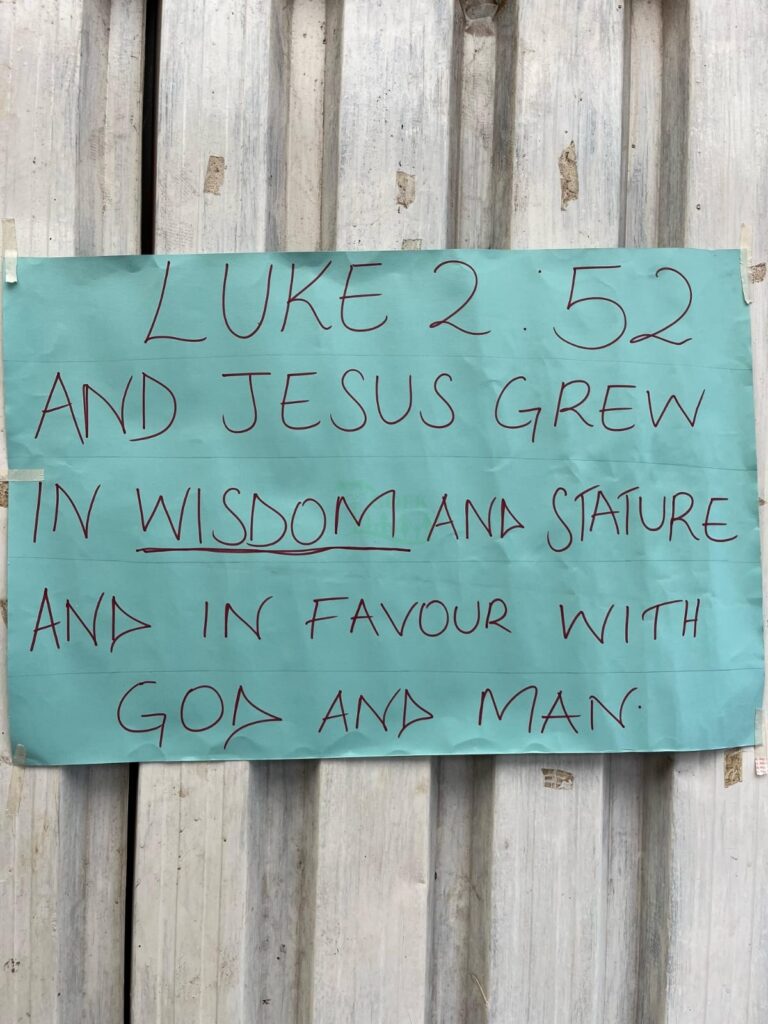 LUKE 2:52
AND JESUS GREW
IN WISDOM AND STATURE
AND IN FAVOUR WITH
GOD AND MAN.